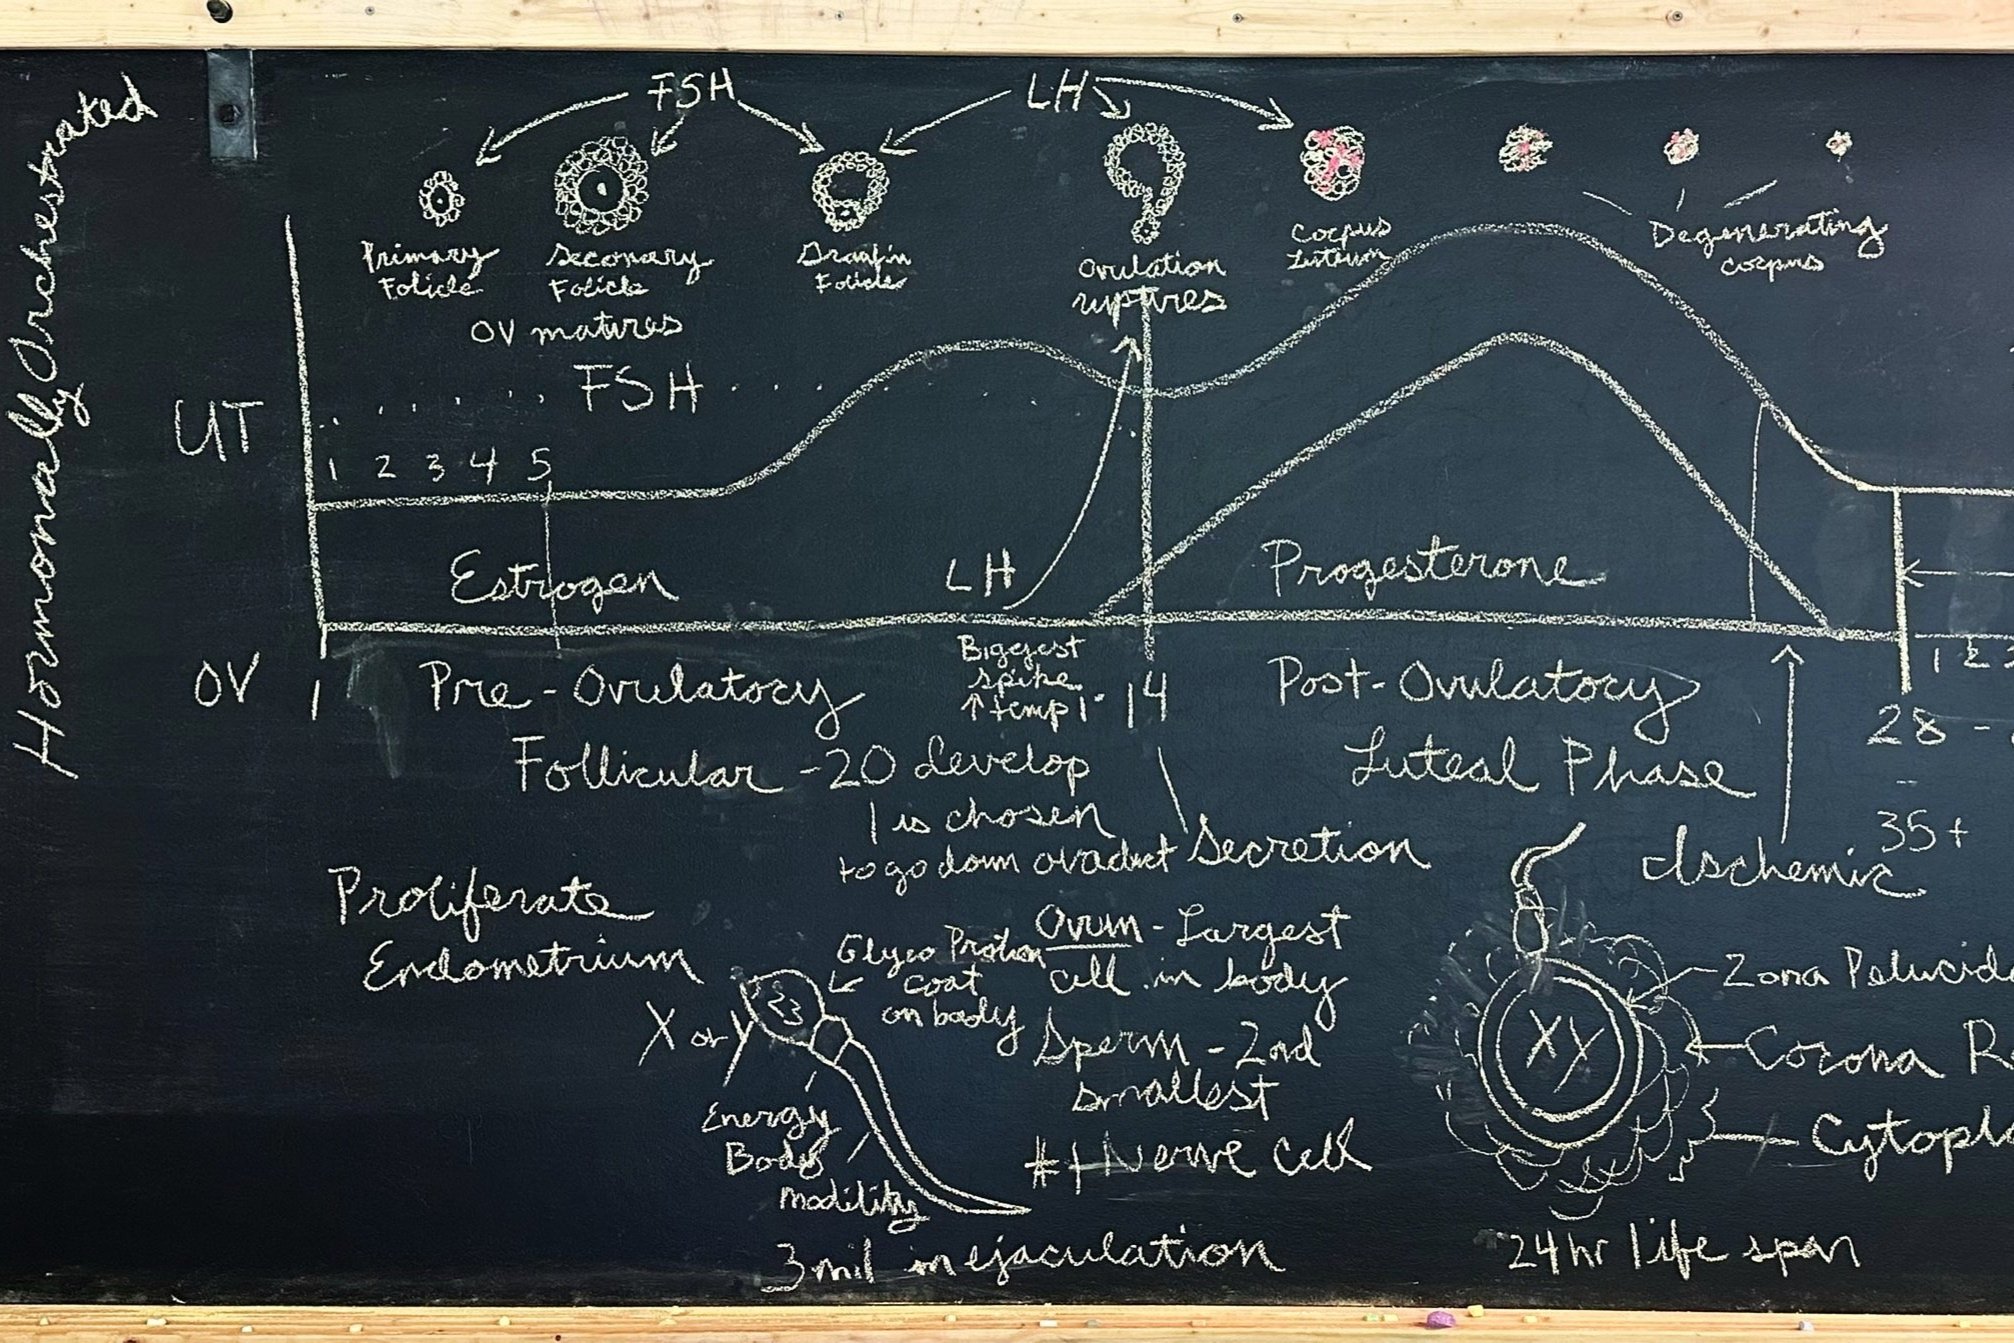 Hormonally Orchestrated
FSH
LH
Primary
Folicle
Seconary
Folicle
Graafin
Folicle
Ovulation
ruptures
Corpus
Luteum
Degenerating
corpus
OV matures
FSH
UT
1 2 3 4 5
Estrogen
LH
Progesterone
OV
1
Pre-Ovulatory
Biggest
spike
↑ temp 1°
14
Post-Ovulatory
1 2 3
28 -
-
35+
Follicular - 20 develop
1 is chosen
to go down ovaduct
Luteal Phase
Secretion
Ischemic
Proliferate
Endometrium
Glyco Protion
coat
on body
Ovum - Largest
cell in body
Sperm - 2nd
smallest
#1 Nerve cell
X or Y
23
Energy
Body
modility
3 mil in ejaculation
XY
Zona Pelucid
Corona R
Cytopl
24hr life span